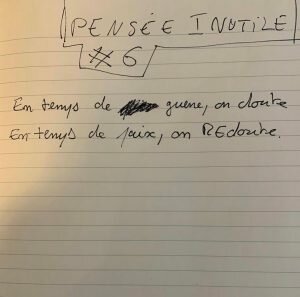 PENSÉE INUTILE
# 6
En temps de guerre, on doute
En temps de paix, on REdoute.